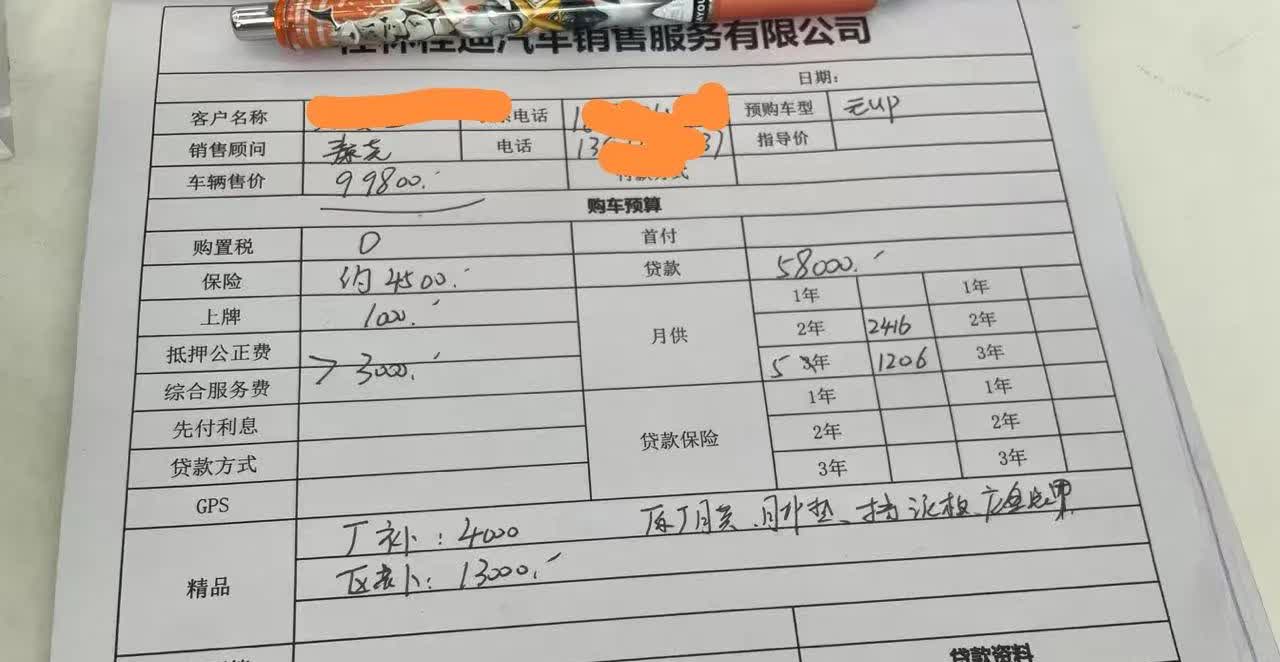 汽车销售服务有限公司
日期：
客户名称 电话 预购车型 元up
销售顾问 电话 13 指导价
车辆售价 99800.
购车预算
购置税 0 首付
保险 约4500. 贷款 58000.
上牌 1000. 月供 1年 1年
2年 2416 2年
抵押公正费 3000. 5 年 1206 3年
综合服务费 贷款保险 1年 1年
先付利息 2年 2年
贷款方式 3年 3年
GPS
精品 厂补：4000
区补：13000.
贷款资料